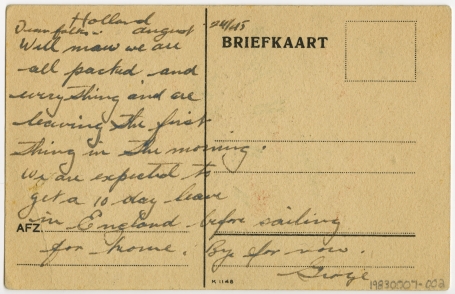 Holland
Dear folks: august 24/45
BRIEFKAART
Well now we are
all packed and
everything and are
leaving the first
thing in the morning.
We are expected to
get a 10 day leave
in England before sailing
AFZ.
for home. Bye for now.
George
K 1146
19830007-002